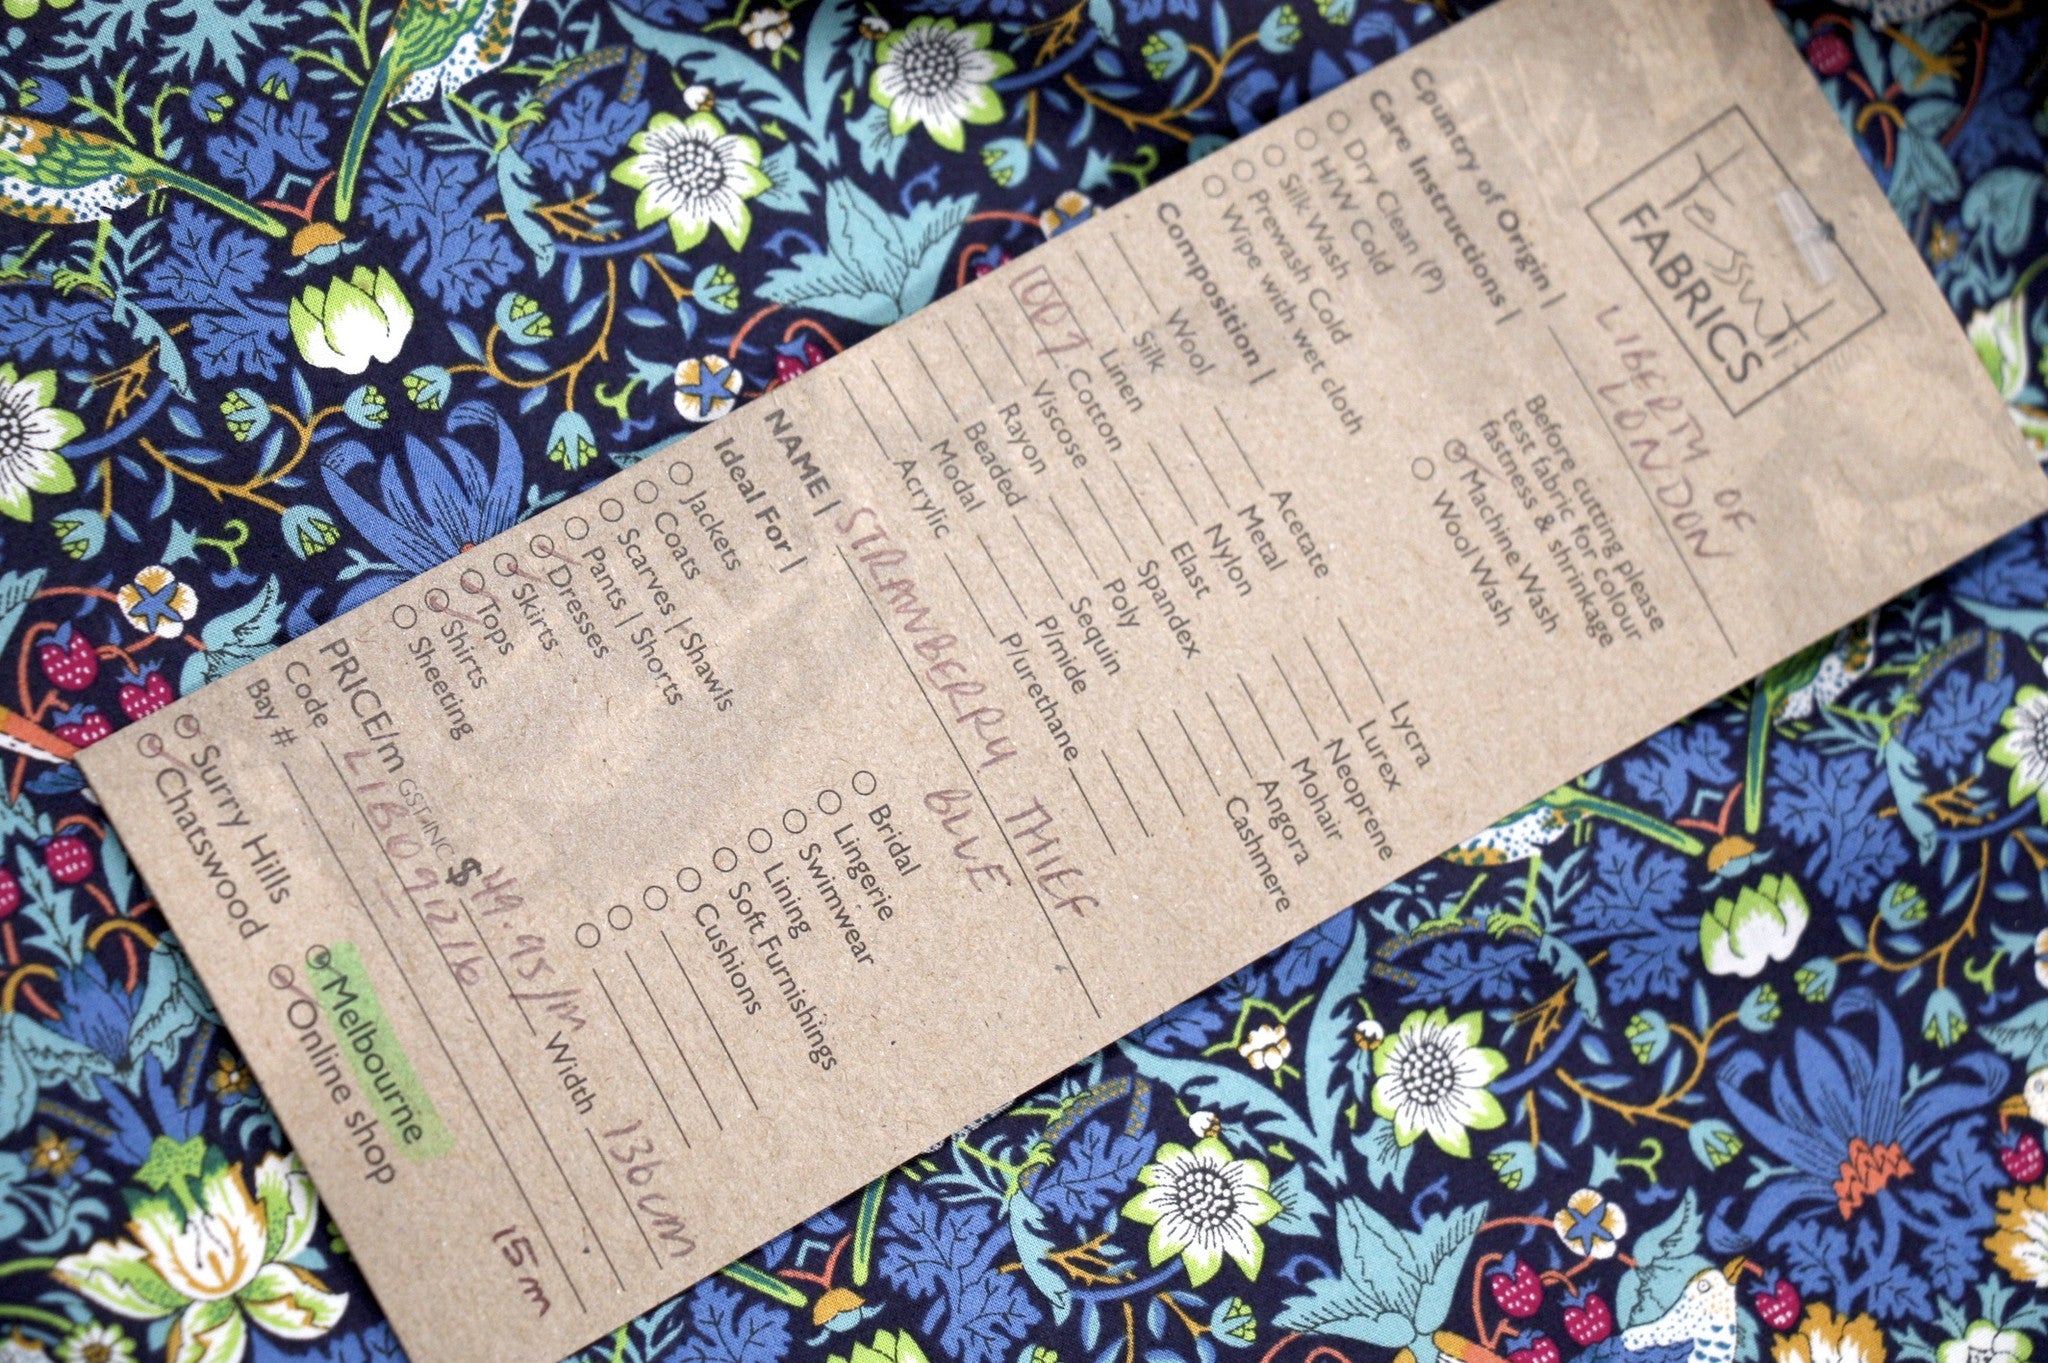 Tessuti
FABRICS
Country of Origin | LIBERTY OF
LONDON
Care Instructions |
Dry Clean (P)
H/W Cold
Silk Wash
Prewash Cold
Wipe with wet cloth
Before cutting please
test fabric for colour
fastness & shrinkage
Machine Wash
Wool Wash
Composition |
Wool
Silk
Linen
Cotton
Viscose
Rayon
Beaded
Modal
Acrylic
Acetate
Metal
Nylon
Elast
Spandex
Poly
Sequin
P/mide
P/urethane
Lycra
Lurex
Neoprene
Mohair
Angora
Cashmere
NAME | STRAWBERRY THIEF
BLUE
Ideal For |
Jackets
Coats
Scarves | Shawls
Pants | Shorts
Dresses
Skirts
Tops
Shirts
Sheeting
Bridal
Lingerie
Swimwear
Lining
Soft Furnishings
Cushions
PRICE/m GST INC $ 49.95/m Width 136cm
Code LIB091216
Bay #
15m
Surry Hills
Chatswood
Melbourne
Online shop